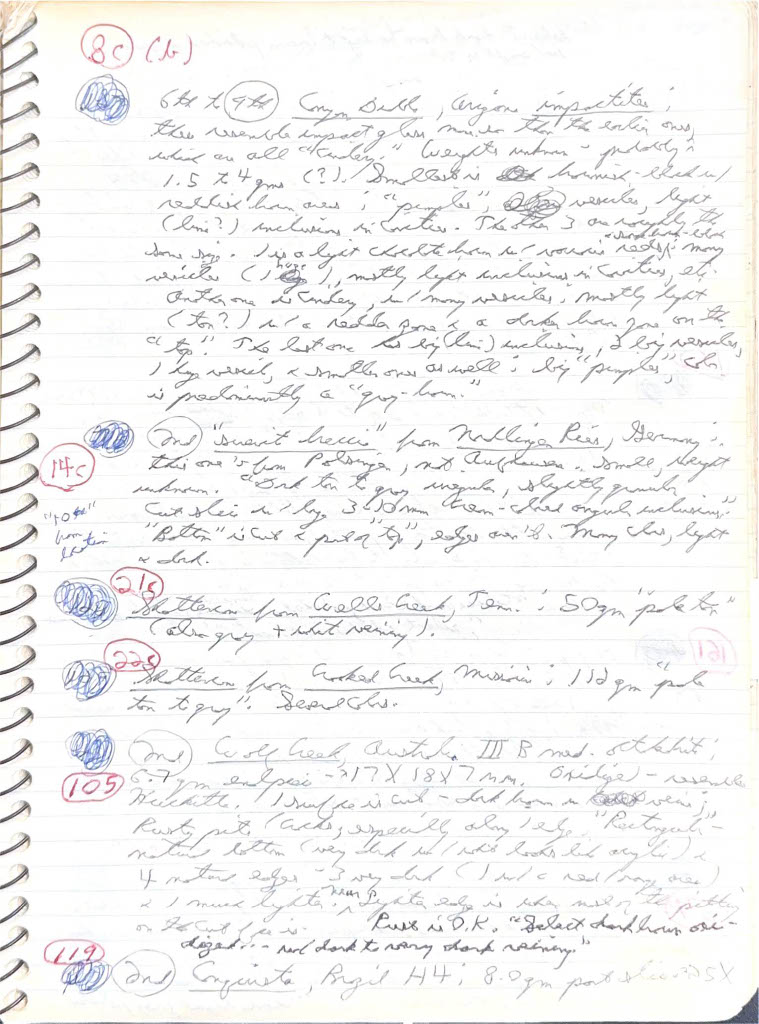 8c (b)
6th to 9th Canyon Diablo, Arizona impactites;
these resemble impact glass more so than the earlier ones,
which are all "cindery." Weights unknown - probably
1.5 to 4 gms (?). Smallest is brownish-black w/
reddish brown areas; "pimples", vesicles, light
(lime?) inclusions in cavities. The other 3 are roughly the
same size. 1 is a light chocolate brown w/ various reds; many
vesicles (1 huge), mostly light inclusions in cavities, etc.
Another one is cindery, w/ many vesicles; mostly light
(tan?) w/ a redder zone & a darker brown zone on the
"top". The last one has big (lime) inclusions, 2 big vesicles,
1 huge vesicle, & smaller ones as well; big "pimples", color
is predominantly a "gray-brown."
2nd "suevit breccia" from Nordlinger Ries, Germany;
14c
this one's from Polsingen, not Aufhausen. Small, weight
unknown. "Dark tan to gray irregular, slightly granular
cut slice w/ large 3-10 mm cream-colored angular inclusions."
"Bottom" is cut & part of "top", edges aren't. Many colors, light
& dark.
"10th" from
21c
Shattercone from Wells Creek, Tenn.; 50 gm "pale tan"
(also gray + white veining).
22c
Shattercone from Crooked Creek, Missouri; 112 gm "pale
tan to gray". Several colors.
121
2nd Wolf Creek, Australia III B med. octahedrite;
105
6.7 gm endpiece - 17 X 18 X 7 mm. Oxidized - resembles
1 surface is cut - dark brown w/ veins;
Rusty pits/cracks, especially along 1 edge. "Rectangular" -
natural bottom (very dark w/ what looks like acrylic) &
4 natural edges - 3 very dark (1 w/ a red/orange area)
& 1 much lighter. Lighter edge is where most of the pitting
on the cut face is. Rust is O.K. "Select dark brown oxi-
dized... - red dark to very dark veining."
119
2nd Conquista, Brazil H4; 8.0 gm part slice